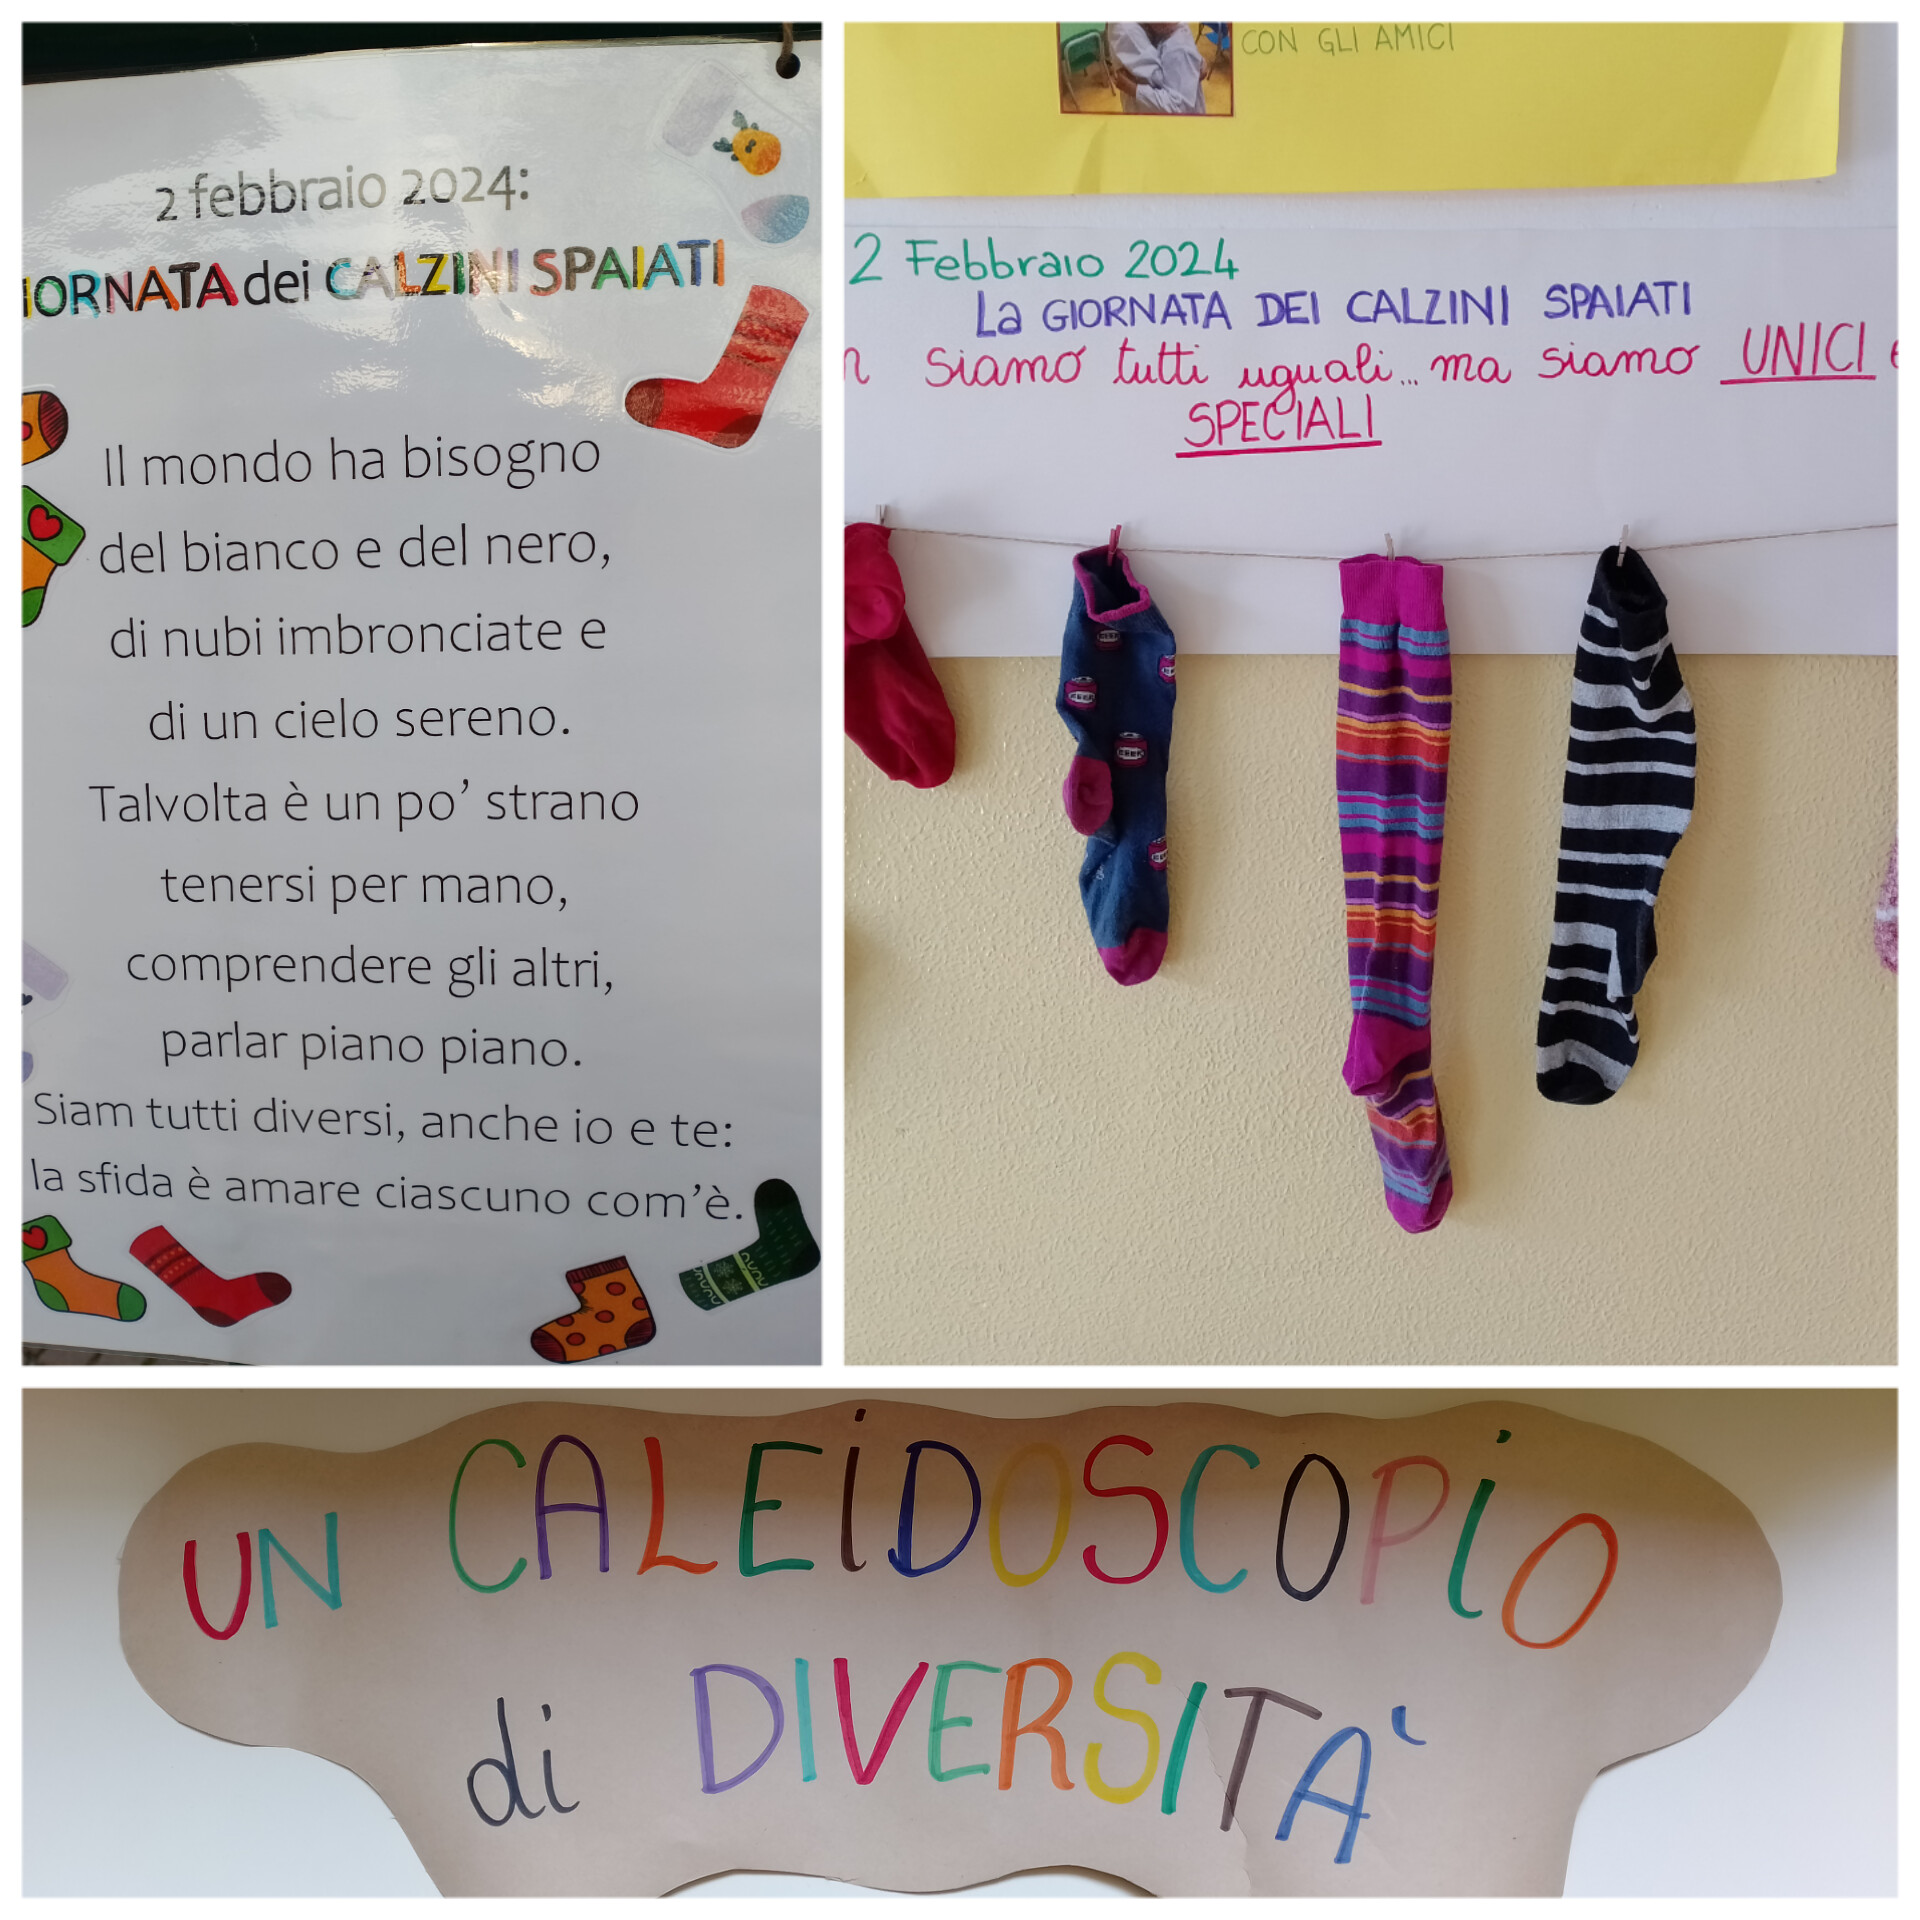 2 febbraio 2024:
IORNATA dei CALZINI SPAIATI
Il mondo ha bisogno
del bianco e del nero,
di nubi imbronciate e
di un cielo sereno.
Talvolta è un po' strano
tenersi per mano,
comprendere gli altri,
parlar piano piano.
Siam tutti diversi, anche io e te:
la sfida è amare ciascuno com'è.
CON GLI AMICI
2 Febbraio 2024
La GIORNATA DEI CALZINI SPAIATI
n siamo tutti uguali... ma siamo UNICI e
SPECIALI
BEER
BEER
BEER
UN CALEIDOSCOPIO
di DIVERSITA'